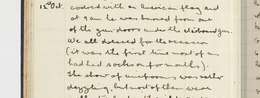 15th Oct. covered with an American flag and
at 9 am he was buried from one of
the gun doors under the istbound gun.
We all dressed for the occasion
(it was the first time most of us
had had socks on for months).
The show of uniforms was rather
dazzling, but most of them were